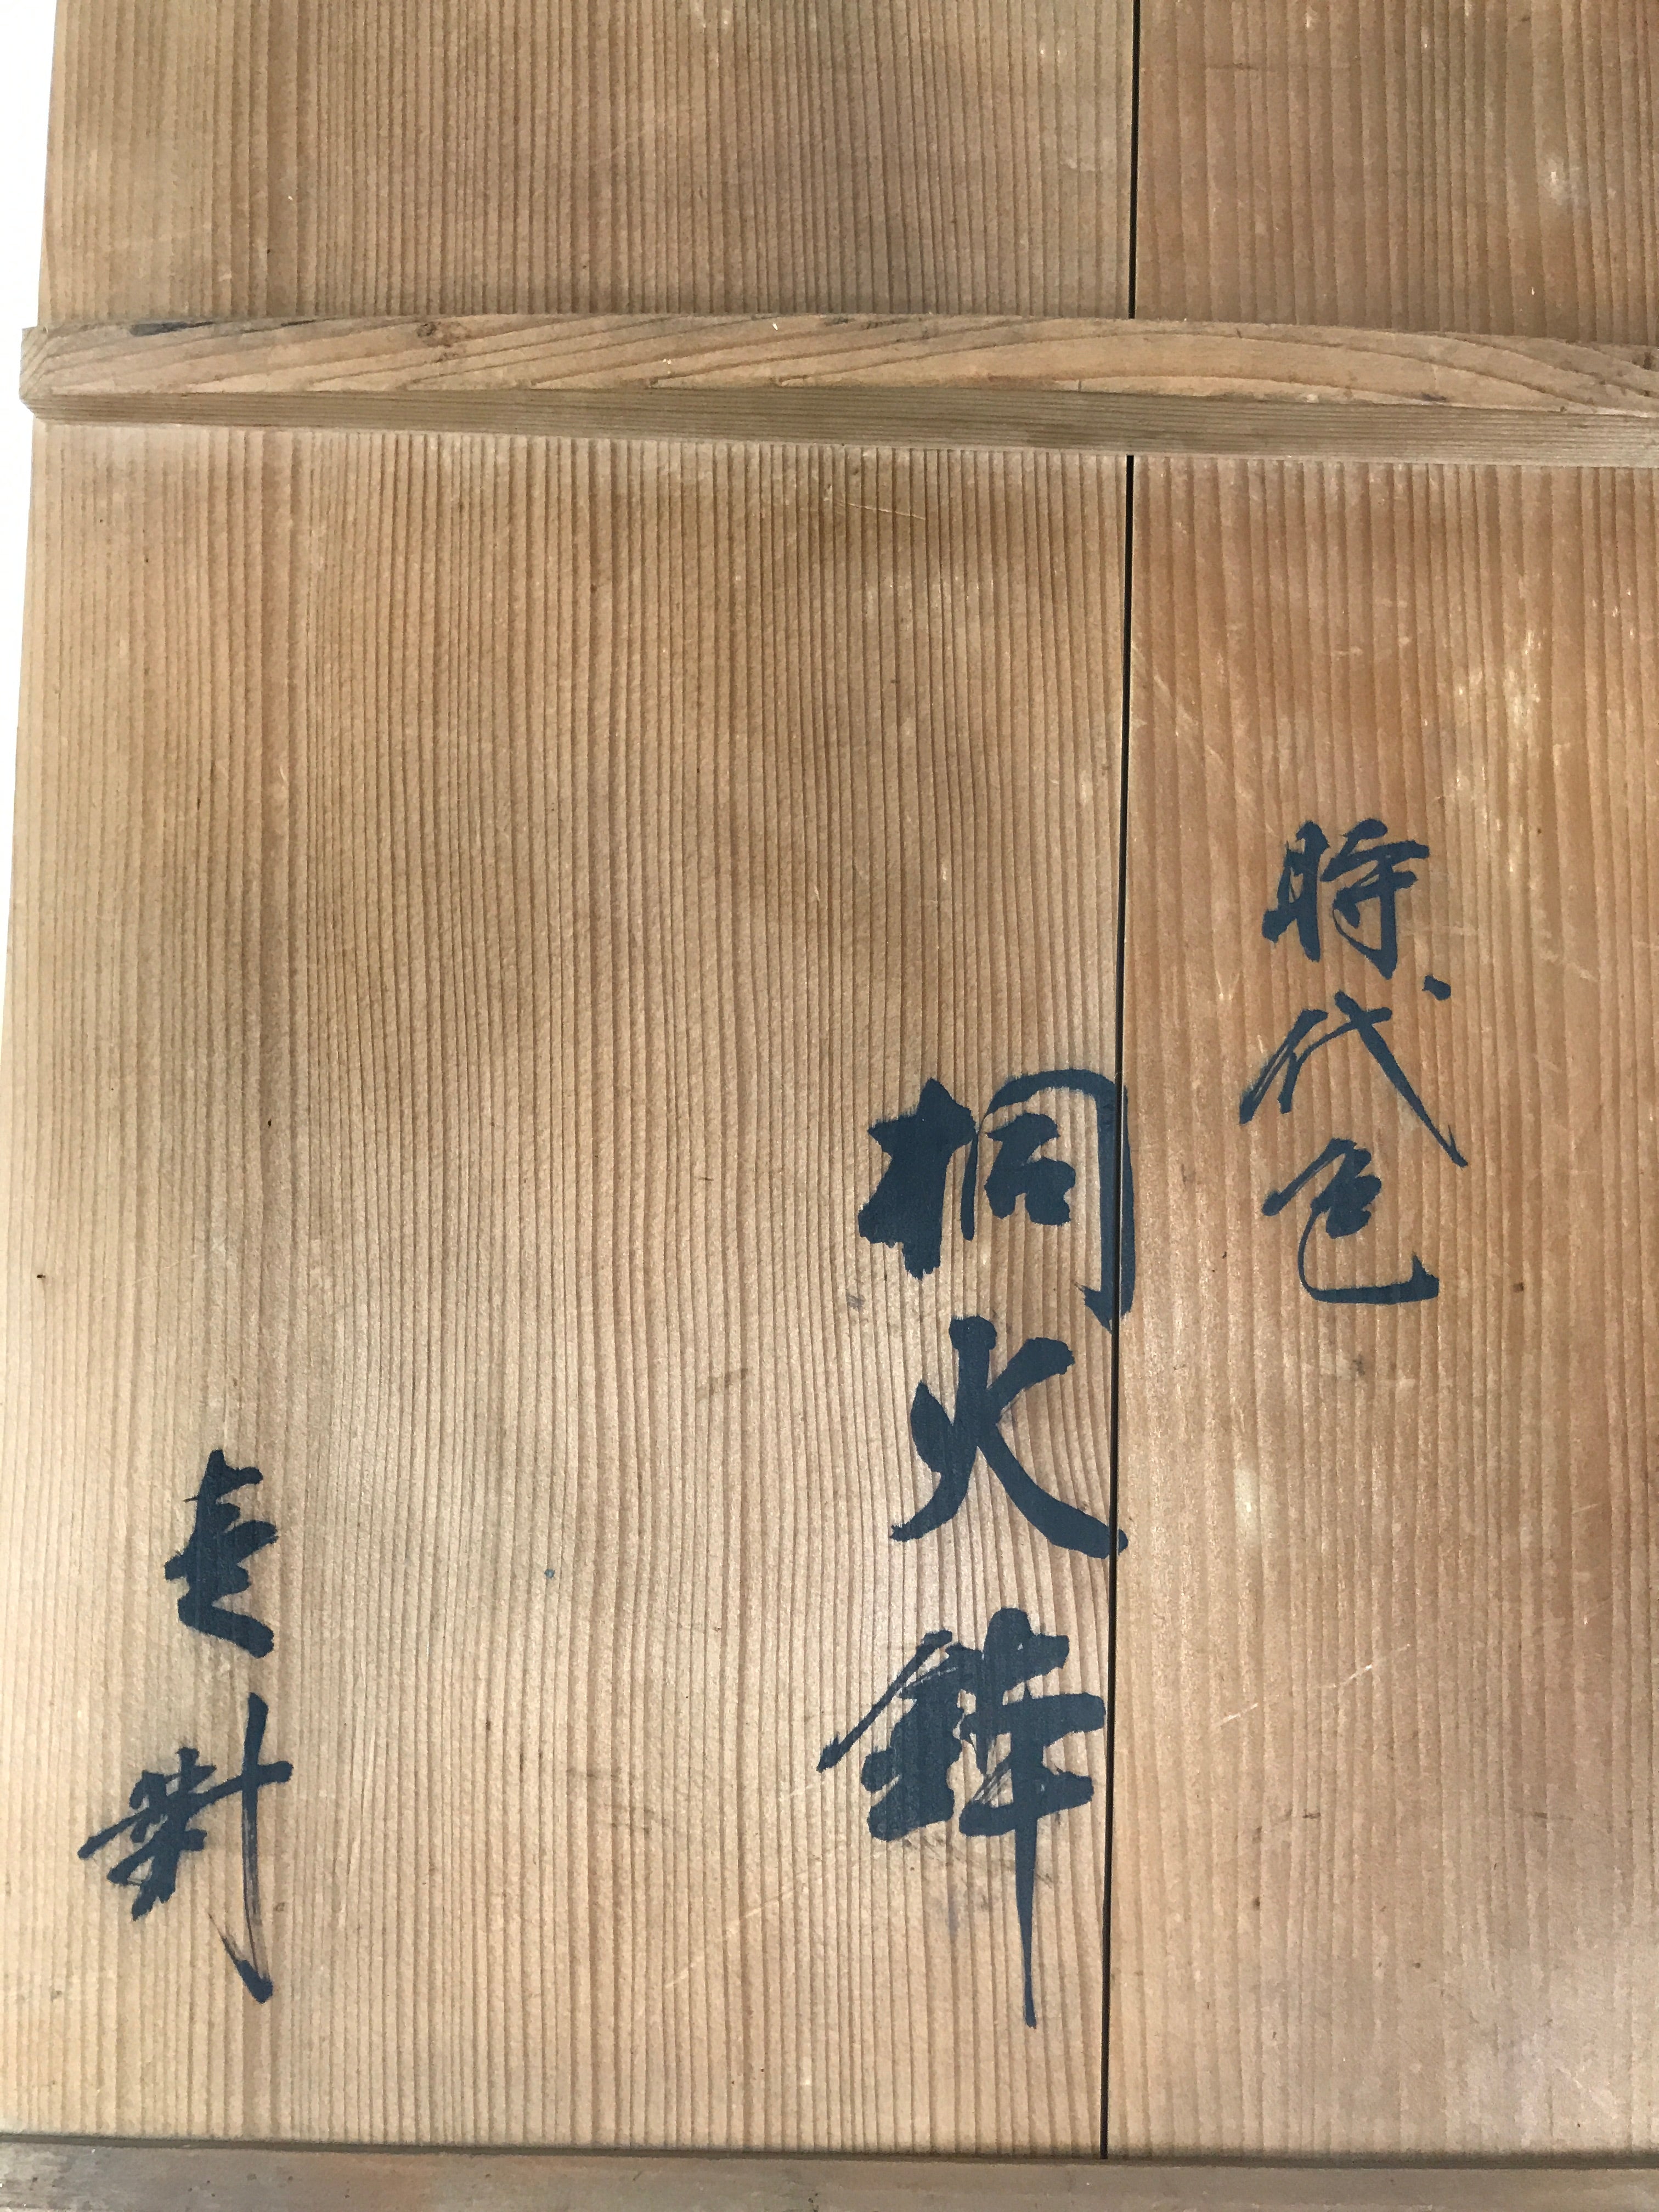 時代色
桐火鉢
壱對